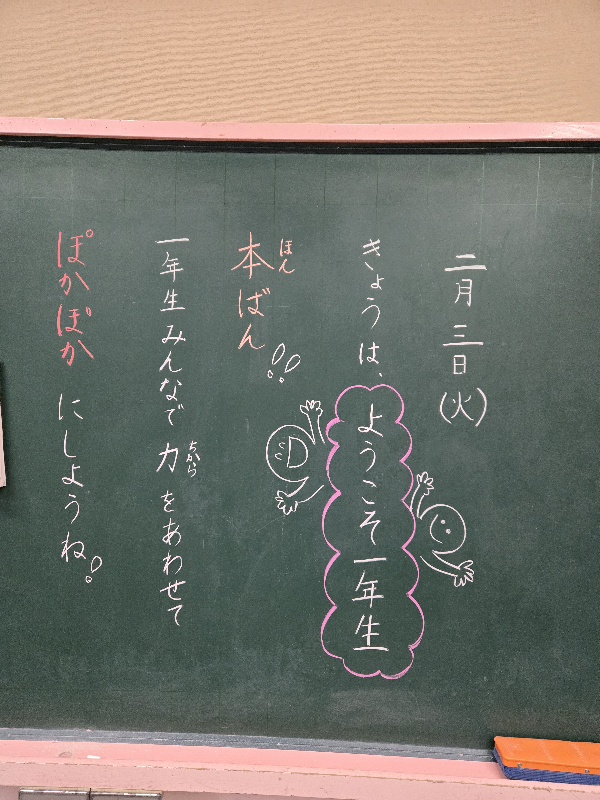 二月三日(火)
きょうは、ようこそ一年生
本ばん!!
ほん
一年生みんなで力をあわせて
ちから
ぽかぽかにしようね!